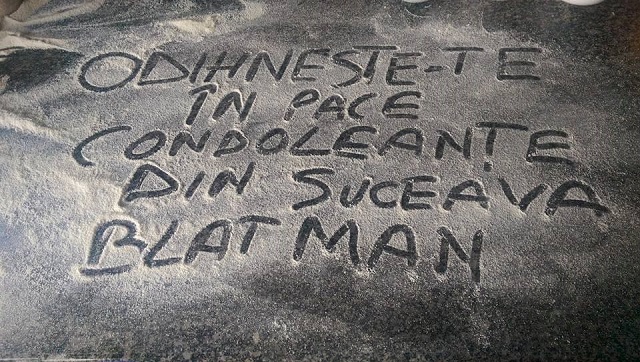 ODIHNESTE-TE
ÎN PACE
CONDOLEANȚE
DIN SUCEAVA
BLAT MAN